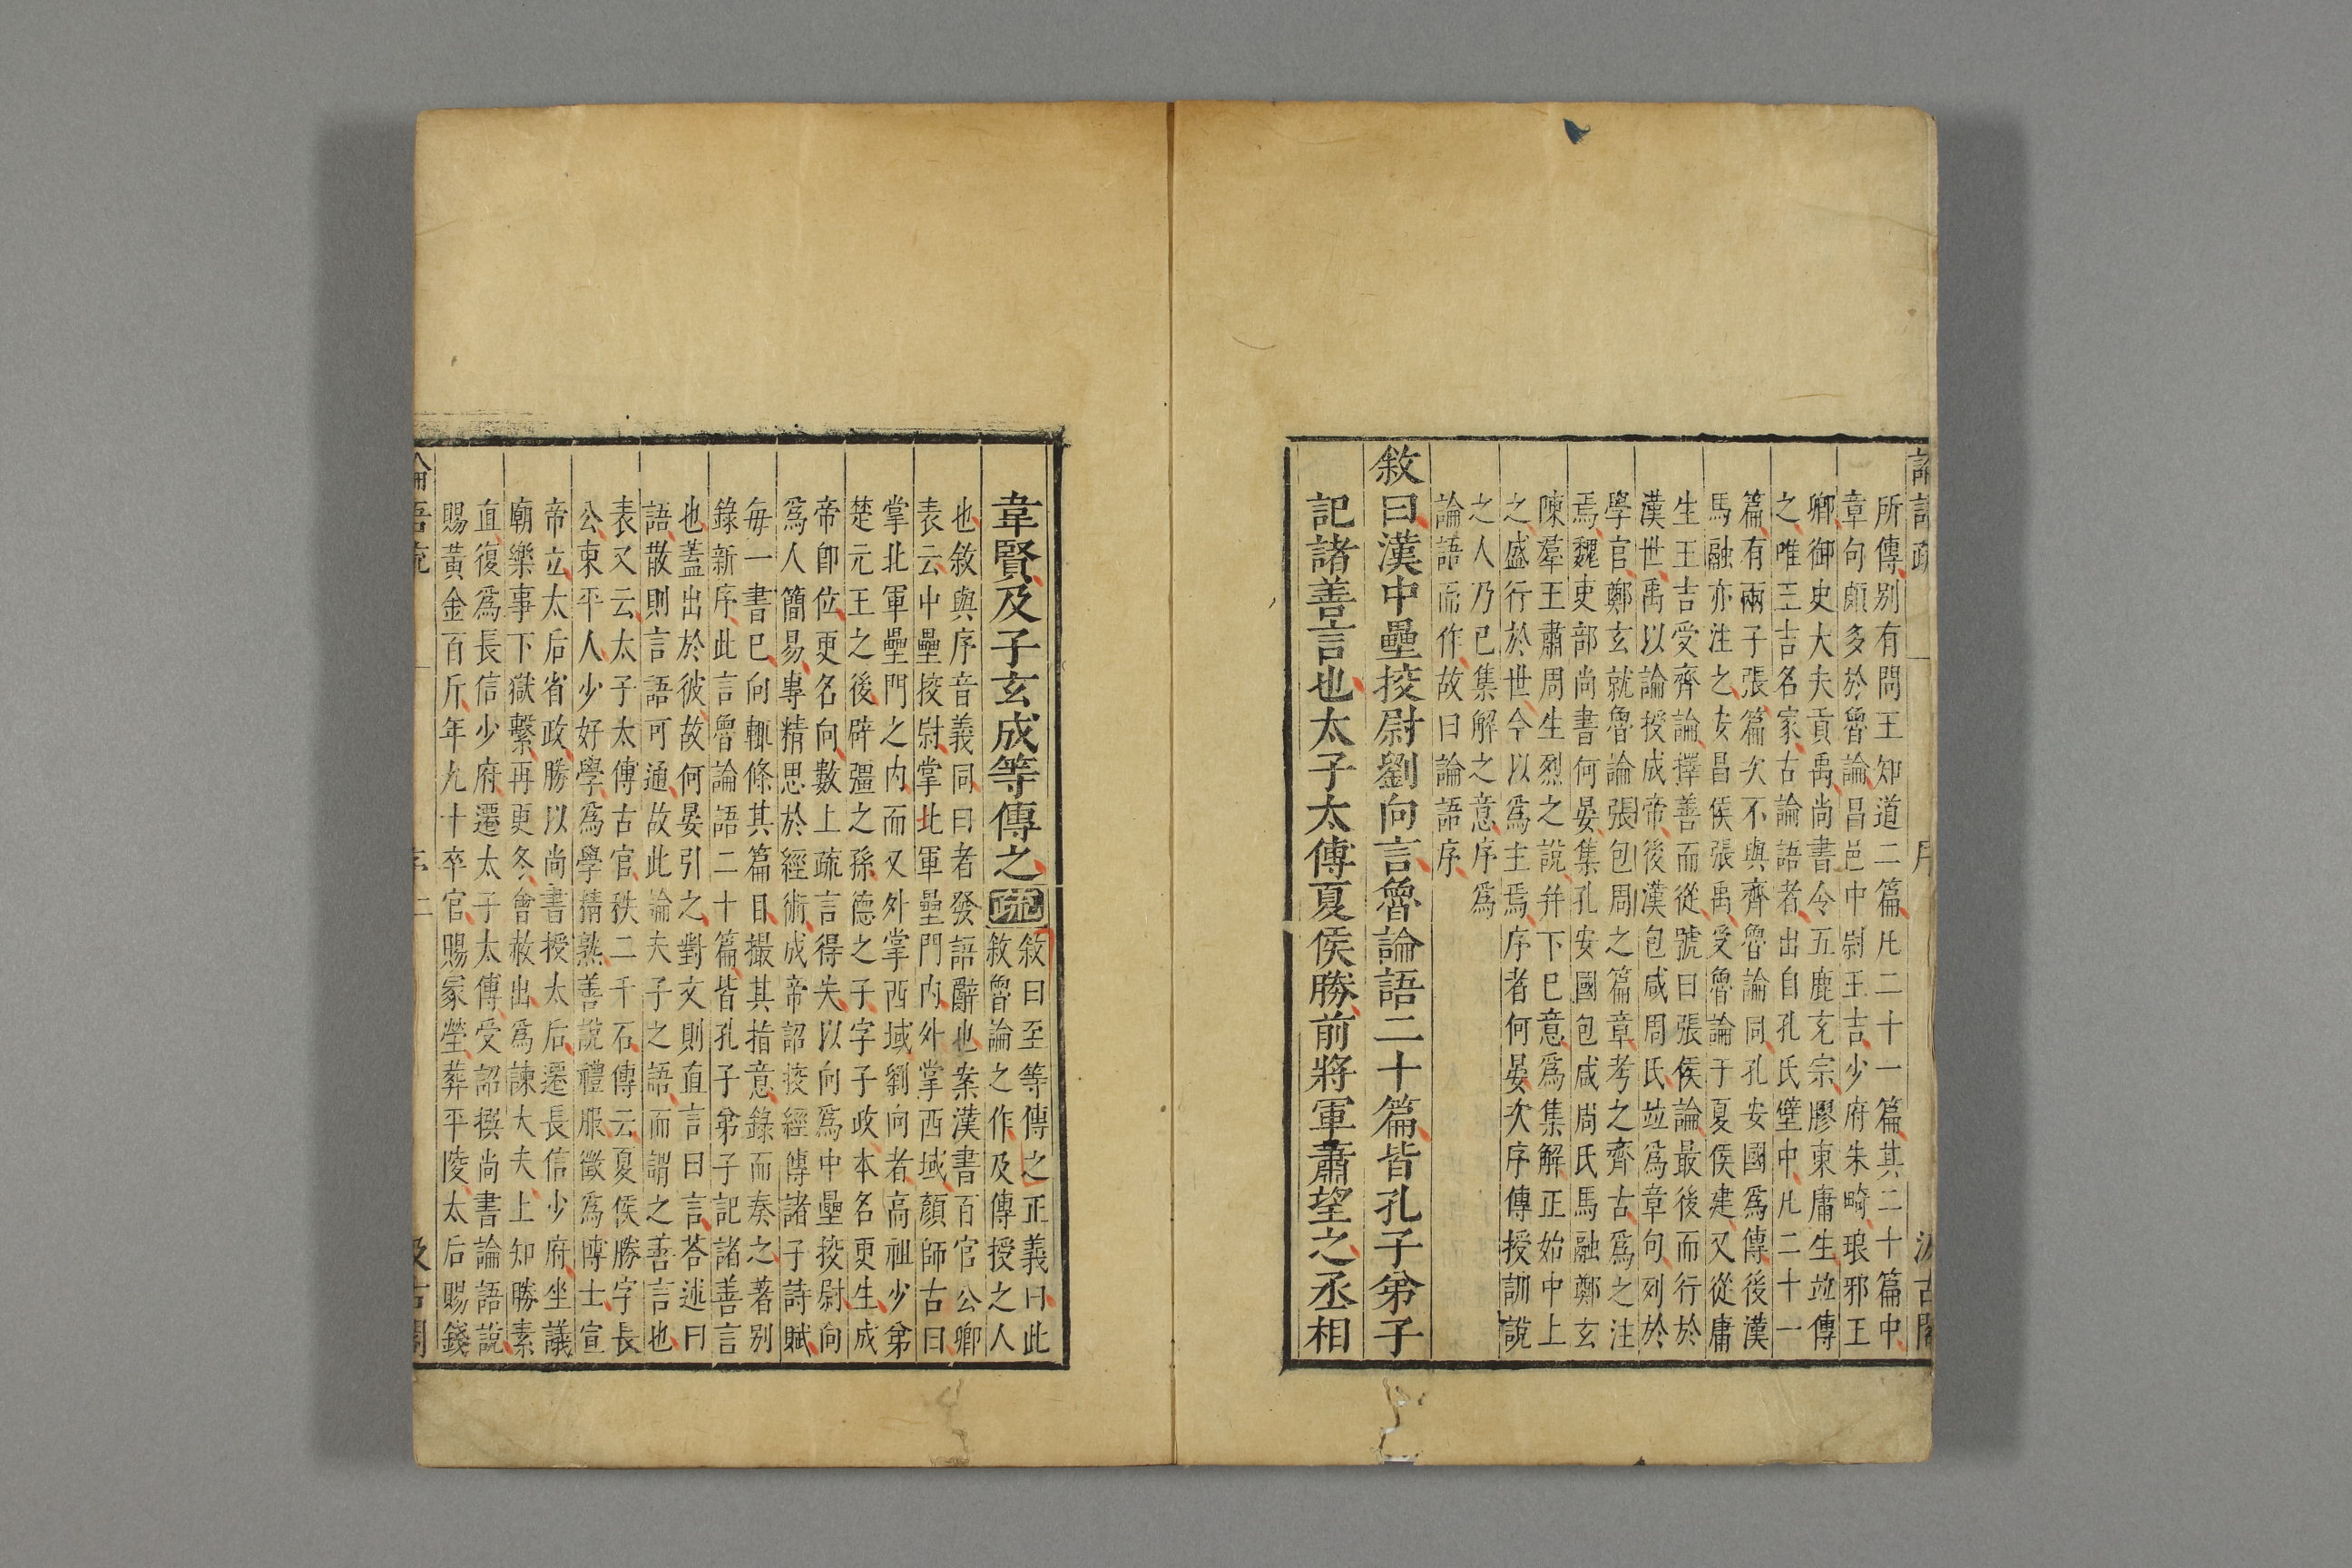 所傳別有問王知道二篇凡二十一篇其二十篇中
章句頗多於魯論昌邑中尉王吉少府朱畸琅邪王
卿御史大夫貢禹尚書令五鹿充宗膠東庸生竝傳
之唯王吉名家古論語者出自孔氏壁中凡二十一
篇有兩子張篇次不與齊魯論同孔安國爲傳後漢
馬融亦注之安昌侯張禹受魯論于夏侯建又從庸
生王吉受齊論擇善而從號曰張侯論最後而行於
漢世禹以論授成帝後漢包咸周氏竝爲章句列於
學官鄭玄就魯論張包周之篇章考之齊古爲之注
焉魏吏部尚書何晏集孔安國包咸周氏馬融鄭玄
陳羣王肅周生烈之說并下已意爲集解正始中上
之盛行於世今以爲主焉序者何晏次序傳授訓說
之人乃已集解之意序爲
論語而作故曰論語序
敘曰漢中壘挍尉劉向言魯論語二十篇皆孔子弟子
記諸善言也太子太傅夏侯勝前將軍蕭望之丞相
韋賢及子玄成等傳之疏
敘曰至等傳之正義曰此
敘魯論之作及傳授之人
也敘與序音義同曰者發語辭也案漢書百官公卿
表云中壘挍尉掌北軍壘門內外掌西域顏師古曰
掌北軍壘門之內而又外掌西域劉向者高祖少弟
楚元王之後辟彊之孫德之子字子政本名更生成
帝卽位更名向數上疏言得失以向爲中壘挍尉向
爲人簡易專精思於經術成帝詔挍經傳諸子詩賦
每一書已向輒條其篇目撮其指意錄而奏之著別
錄新序此言魯論語二十篇皆孔子弟子記諸善言
也蓋出於彼故何晏引之對文則直言曰言荅述曰
語散則言語可通故此論夫子之語而謂之善言也
表又云太子太傅古官秩二千石傳云夏侯勝字長
公東平人少好學爲學精熟善說禮服徵爲博士宣
帝立太后省政勝以尚書授太后遷長信少府坐議
廟樂事下獄繫再更冬會赦出爲諫大夫上知勝素
直復爲長信少府遷太子太傅受詔撰尚書論語說
賜黃金百斤年九十卒官賜冢塋葬平陵太后賜錢